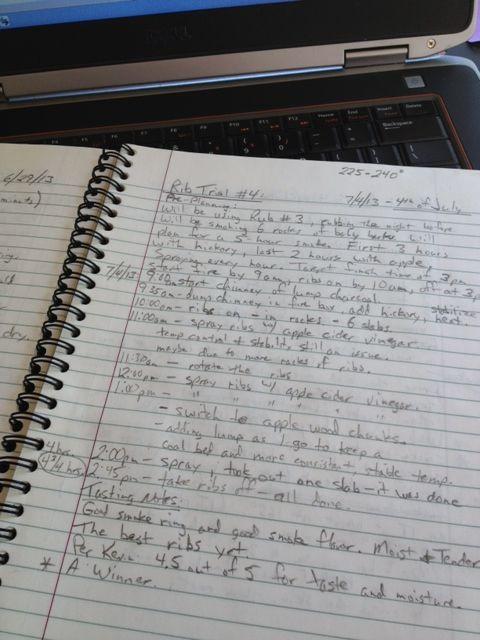 DELL
F6
F7
F8
F9
F10
F11
F12
Home
End
Insert
Delete
Backspace
6/29/13
minutes)
dry.
225-240°
Rib Trial #4:
7/4/13 - 4th of July
Pre-Planning:
Will be using Rub #3, rubbing the night before
Will be smoking 6 racks of back ribs will
plan for a 5 hour smoke. First 3 hours
with hickory, last 2 hours with apple.
Spraying every hour. Target finish time of 3pm.
Start fire by 9am, ribs on by 10am, off at 3pm
7/4/13 9:00 am start chimney of lump charcoal.
9:35am - dump chimney in fire box, add hickory, stabilize heat.
10:00am - ribs on - in racks - 6 slabs
11:00am - spray ribs w/ apple cider vinegar
temp control & stability still an issue.
maybe due to more racks of ribs.
11:30am - rotate the ribs
12:00pm - spray ribs w/ apple cider vinegar.
1:00pm - " " " " " "
- switch to apple wood chunks.
- adding lump as I go to keep a
coal bed and more consistent, stable temp.
4 hrs 2:00pm - spray, took out one slab - it was done
4 3/4 hrs 2:45pm - take ribs off - all done.
Tasting Notes:
Good smoke ring and good smoke flavor. Moist & Tender
The best ribs yet
Per Kevin 4.5 out of 5 for taste and moisture.
* A Winner.